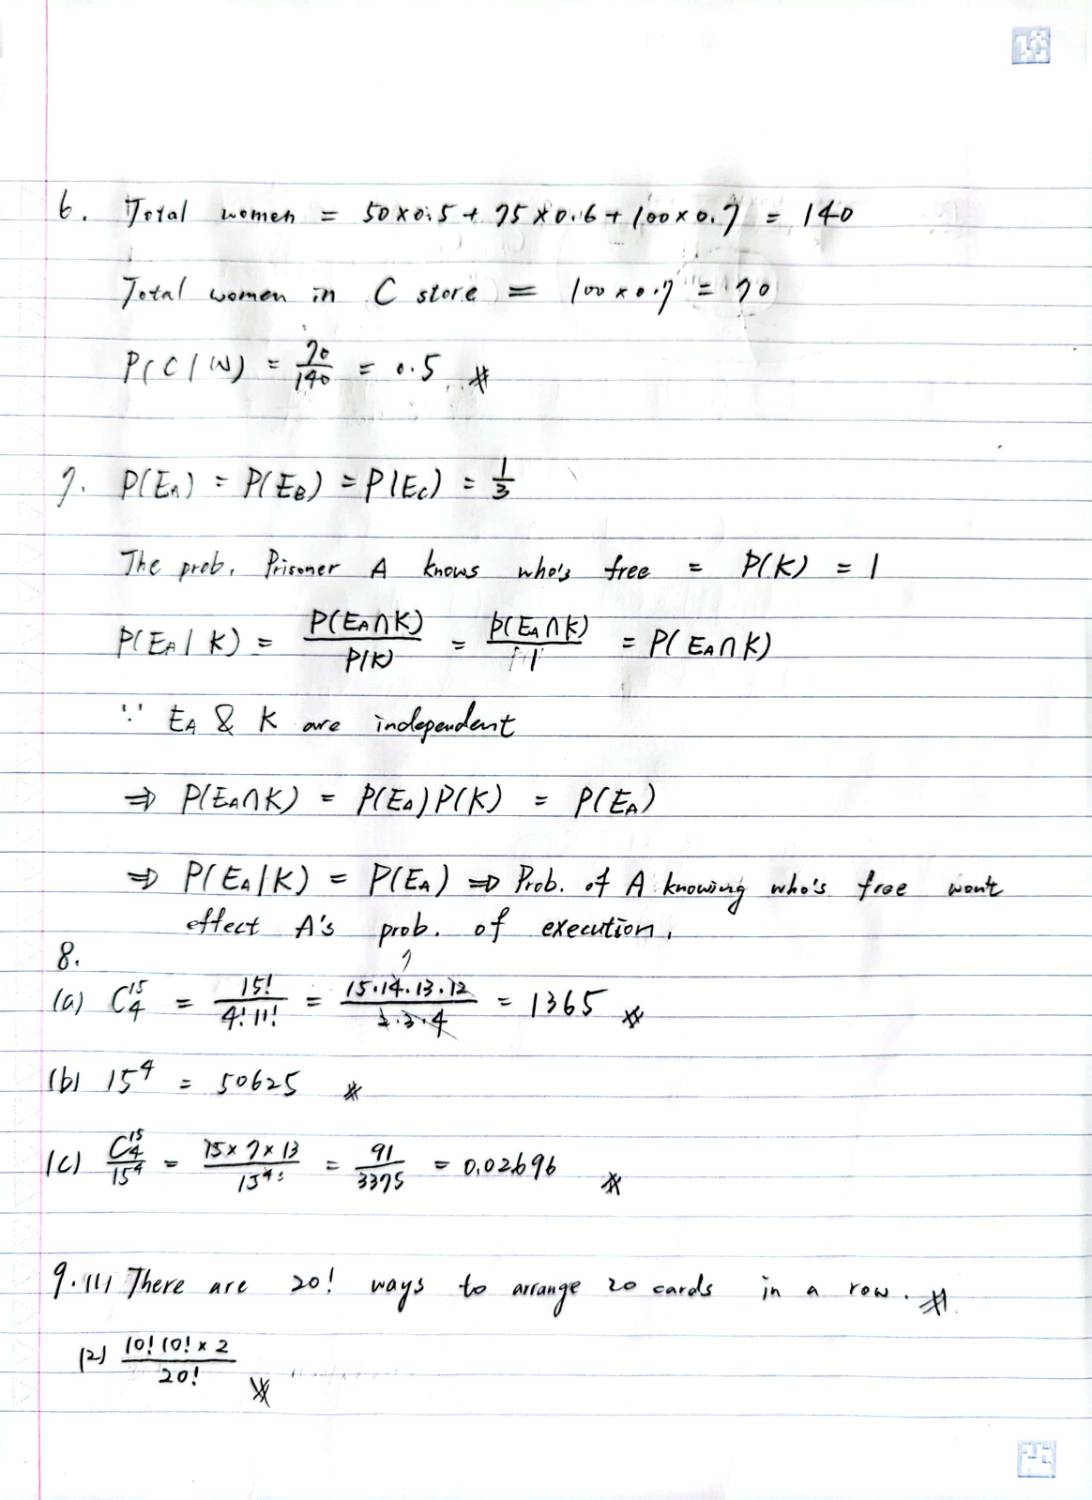 6. Total women = 50×0.5 + 75×0.6 + 100×0.7 = 140
Total women in C store = 100×0.7 = 70
P(C|W) = 70/140 = 0.5 #
7. P(EA) = P(EB) = P(EC) = 1/3
The prob. Prisoner A knows who's free = P(K) = 1
P(EA|K) = P(EA∩K)/P(K) = P(EA∩K)/1 = P(EA∩K)
∵ EA & K are independent
⇒ P(EA∩K) = P(EA)P(K) = P(EA)
⇒ P(EA|K) = P(EA) ⇒ Prob. of A knowing who's free won't
effect A's prob. of execution.
8.
(a) C^15_4 = 15!/4!11! = 15·14·13·12/2·3·4 = 1365 #
7
(b) 15^4 = 50625 #
(c) C^15_4/15^4 = 15×7×13/15^4 = 91/3375 = 0.02696 #
9.(1) There are 20! ways to arrange 20 cards in a row. #
(2) 10!10!×2/20! #